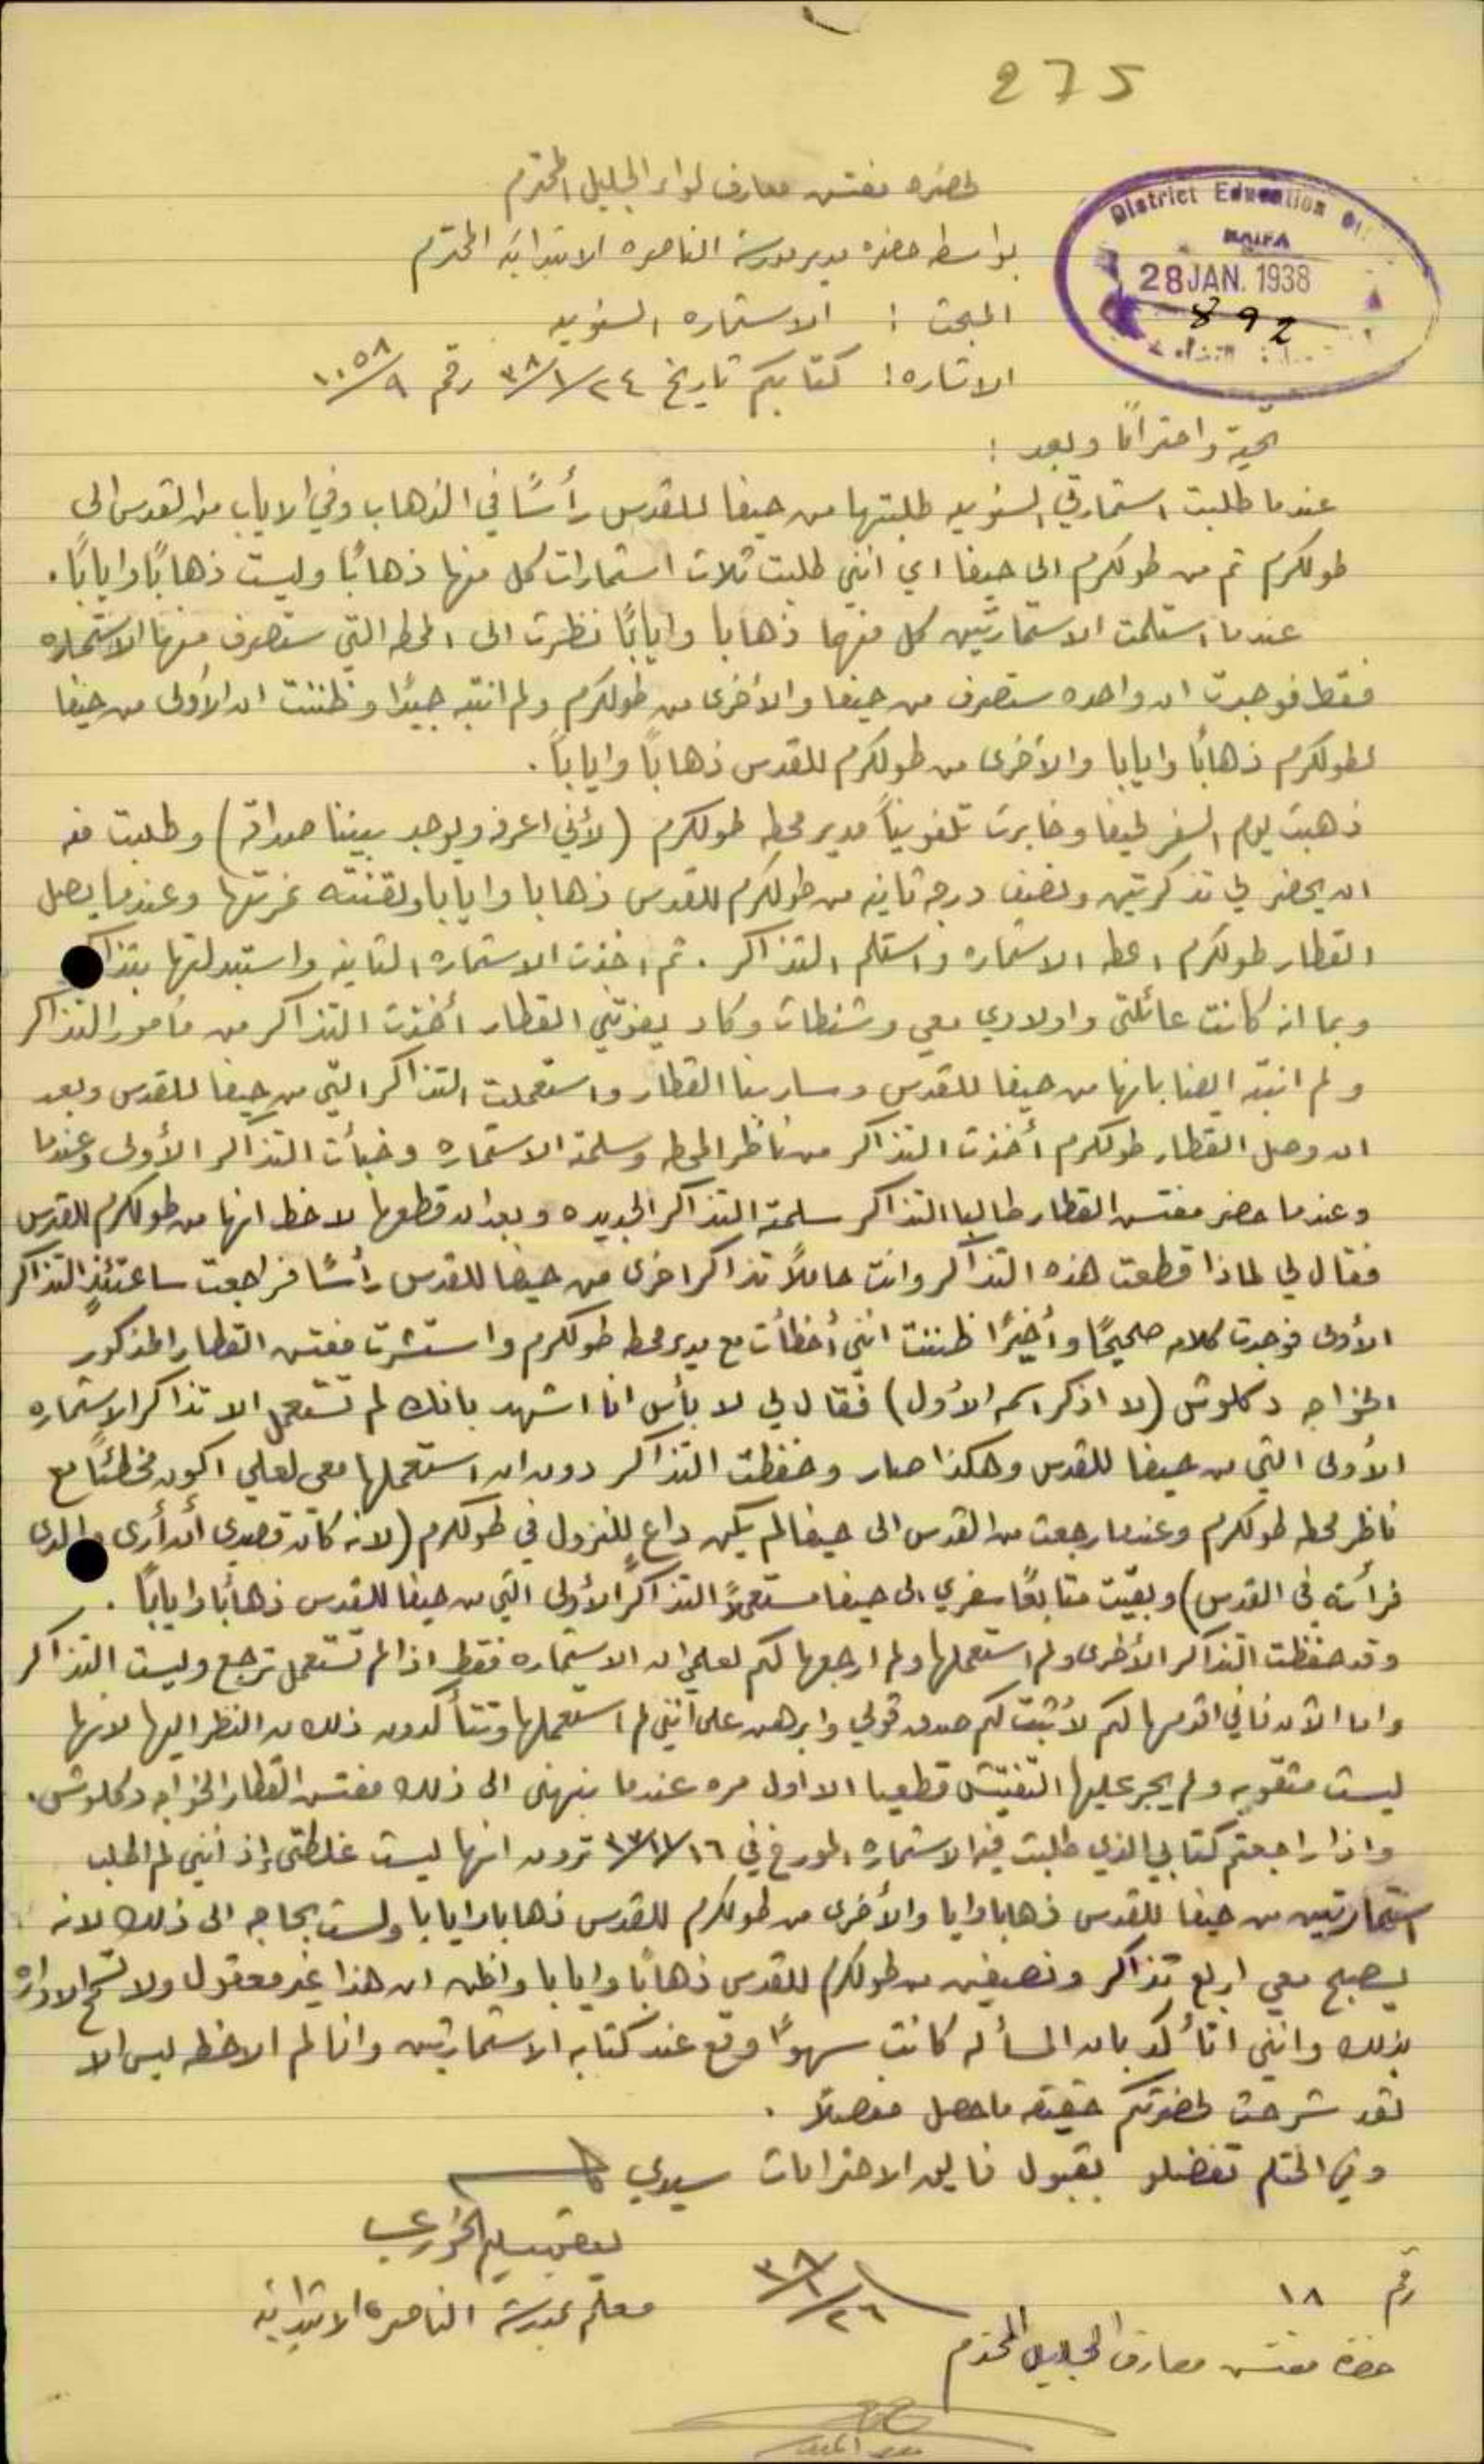 275
District Education
HAIFA
28 JAN. 1938
892
لحضرة مفتش معارف لواء الجليل المحترم
بواسطة حضرة مدير مدرسة الناصره الابتدائية المحترم
المبحث : الاستماره السنويه
الاشاره : كتابكم تاريخ ٣٨/١/٢٤ رقم ١٠٥٨/٩
تحية واحترامًا وبعد :
عندما طلبت استمارتي السنويه طلبتها من حيفا للقدس رأسًا في الذهاب وفي الاياب من القدس الى
طولكرم ثم من طولكرم الى حيفا اي انني طلبت ثلاث استمارات كل منها ذهابًا وليست ذهابًا وايابًا .
عندما استلمت الاستمارتين كل منهما ذهابا وايابًا نظرت الى المحطه التي ستصرف منها الاستماره
فقط فوجدت ان واحده ستصرف من حيفا والأخرى من طولكرم ولم انتبه جيدًا وظننت ان الأولى من حيفا
لطولكرم ذهابًا وايابا والأخرى من طولكرم للقدس ذهابًا وايابًا .
ذهبت يوم السفر لحيفا وخابرت تلفونيًا مدير محطه طولكرم (لأني اعرفه ويوجد بيننا صداقة) وطلبت منه
ان يحضر لي تذكرتين ونصف درجه ثانيه من طولكرم للقدس ذهابا وايابا ولقنته نمرتها وعندما يصل
القطار طولكرم اعطه الاستماره واستلم التذاكر . ثم اخذت الاستماره الثانيه واستبدلتها بتذاكر
وبما انه كانت عائلتي واولادي معي وشنطات وكاد يفوتني القطار أخذت التذاكر من مأمور التذاكر
ولم انتبه ايضا بانها من حيفا للقدس وسار بنا القطار واستعملت التذاكر التي من حيفا للقدس وبعد
ان وصل القطار طولكرم أخذت التذاكر من ناظر المحطه وسلمته الاستماره وخبأت التذاكر الأولى وعندما
وعندما حضر مفتش القطار طالبا التذاكر سلمته التذاكر الجديده وبعد ان قطعها لاحظ انها من طولكرم للقدس
فقال لي لماذا قطعت هذه التذاكر وانت حاملًا تذاكر اخرى من حيفا للقدس رأسًا فراجعت ساعتئذٍ التذاكر
الأولى فوجدت كلامه صحيحًا وأخيرًا ظننت انني أخطأت مع مدير محطه طولكرم واستشرت مفتش القطار المذكور
الخواجه دكلوش (لا اذكر اسمه الأول) فقال لي لا بأس انا اشهد بانك لم تستعمل الا تذاكر الاستماره
الأولى التي من حيفا للقدس وهكذا صار وحفظت التذاكر دون ان استعملها معي لعلي اكون مخطئًا مع
ناظر محطه طولكرم وعندما رجعت من القدس الى حيفا لم يكن داعٍ للنزول في طولكرم (لانه كان قصدي أن أرى والدي
فرأيته في القدس) وبقيت متابعًا سفري الى حيفا مستعملًا التذاكر الأولى التي من حيفا للقدس ذهابًا وايابًا .
وقد حفظت التذاكر الأخرى ولم استعملها ولم ارجعها لكم لعلمي ان الاستماره فقط اذا لم تستعمل ترجع وليست التذاكر
واما الآن فاني اقدمها لكم لأثبت لكم صدق قولي وابرهن على انني لم استعملها وتتأكدون ذلك من النظر اليها لانها
ليست مثقوبه ولم يجر عليها التفتيش قطعيا الا اول مره عندما نبهني الى ذلك مفتش القطار الخواجه دكلوش .
واذا راجعتم كتابي الذي طلبت فيه الاستماره المورخ في ١٦/ ترون انها ليست غلطتي إذ انني لم اطلب
استمارتين من حيفا للقدس ذهابا وايابا والأخرى من طولكرم للقدس ذهابا وايابا ولست بحاجه الى ذلك لانه
يصبح معي اربع تذاكر ونصفين من طولكرم للقدس ذهابًا وايابا واظن ان هذا غير معقول ولا تسمح الاداره
بذلك وانني اتأكد بان المسأله كانت سهوًا وقع عند كتابه الاستمارتين وانا لم الاحظه ليس الا
لقد شرحت لحضرتكم حقيقه ما حصل مفصلًا .
وفي الختام تفضلو بقبول فايق الاحترامات سيدي
معلم بمدرسة الناصرة الابتدائيه
رقم ١٨
٣٨/١/٢٦
حضرة مفتش معارف الجليل المحترم